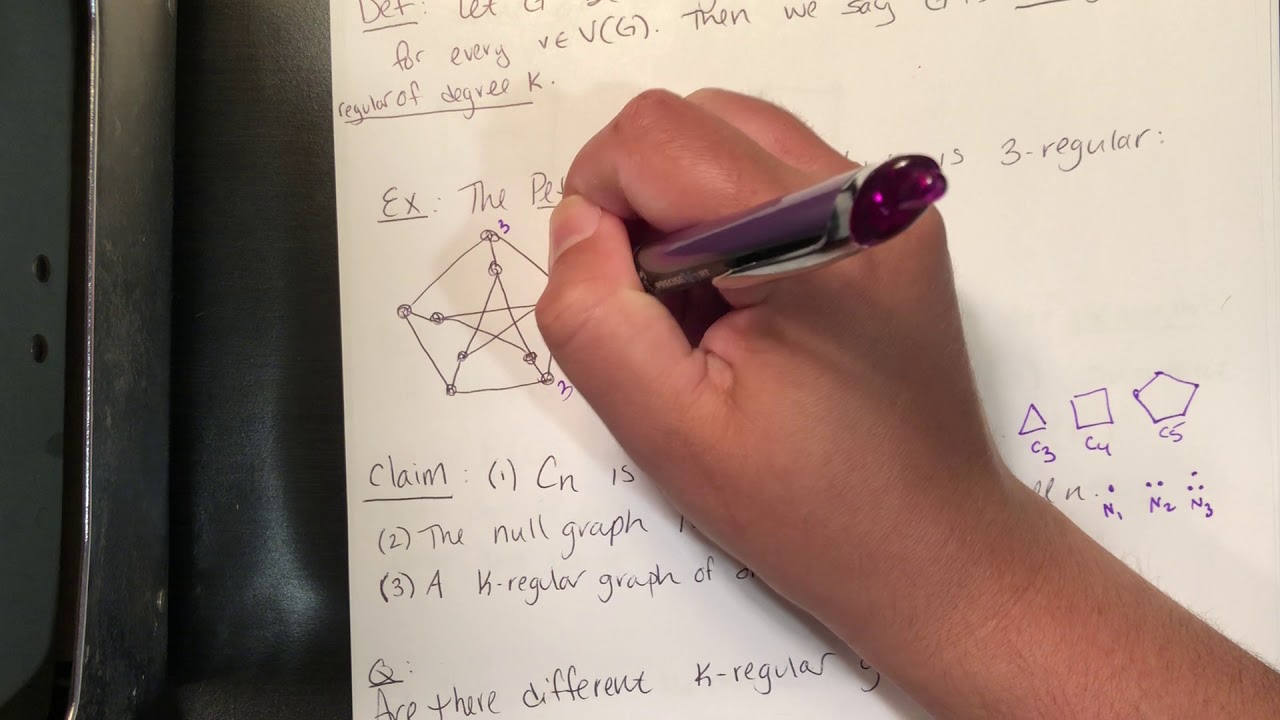 Def: Let G
Then we say G is
for every v∈V(G).
regular of degree K.
Ex: The Pe is 3-regular:
3
3
C3 C4 C5
Claim: (1) Cn is n.
N1 N2 N3
(2) The null graph
(3) A K-regular graph of
Q:
Are there different K-regular